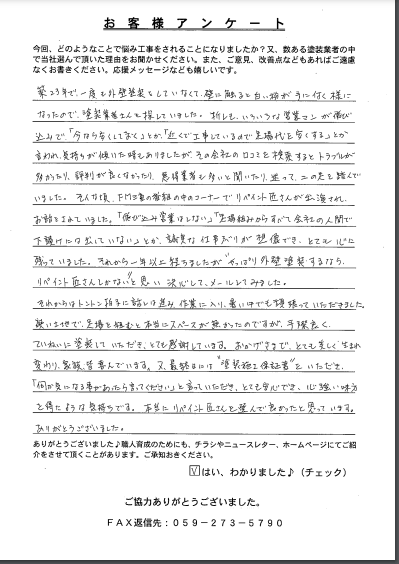 お客様アンケート
今回、どのようなことで悩み工事をされることになりましたか？又、数ある塗装業者の中
で当社選んで頂いた理由をお聞かせください。また、ご意見、改善点などもあればご遠慮
なくお書きください。応援メッセージなども嬉しいです。
築23年で、一度も外壁塗装をしていなくて、壁に触ると白い粉が手に付く様に
なったので、塗装業者さんを探していました。折しも、いろいろな営業マンが飛び
込みで、「今なら安くしておく」とか、「近くで工事しているので足場代を安くする」とか
言われ、気持ちが傾いた時もありましたが、その会社の口コミを検索するとトラブルが
多かったり、評判が良くなかったり、悪徳業者も多いと聞いたり、迷って、二の足を踏んで
いました。そんな頃、FM三重の番組の中のコーナーでリペイント匠さんが出演され、
お話をされていました。「飛び込み営業はしない」「足場組みからすべて会社の人間で
下請けには出していない」とか、誠実な仕事ぶりが想像でき、とても心に
残っていました。それから一年以上経ちましたが"やっぱり外壁塗装するなら、
リペイント匠さんしかない"と思い決心して、メールしてみました。
それからはトントン拍子に話しは進み、作業に入り、暑い中でも頑張っていただきました。
狭いませで、足場を組むと本当にスペースが無かったのですが、手際良く、
ていねいに塗装していただき、とても感謝しています。おかげさまで、とても美しく生まれ
変わり、家族皆喜んでいます。又、最終日には"塗装施工保証書"をいただき、
「何か気になる事があったら言ってください」と言っていただき、とても安心でき、心強い味方
を得たような気持ちです。本当にリペイント匠さんを選んで良かったと思っています。
ありがとうございました。
ありがとうございました♪職人育成のためにも、チラシやニュースレター、ホームページにてご紹
介をさせて頂くことがあります。ご承知おきください。
☑はい、わかりました♪（チェック）
ご協力ありがとうございました。
FAX返信先：059－273－5790